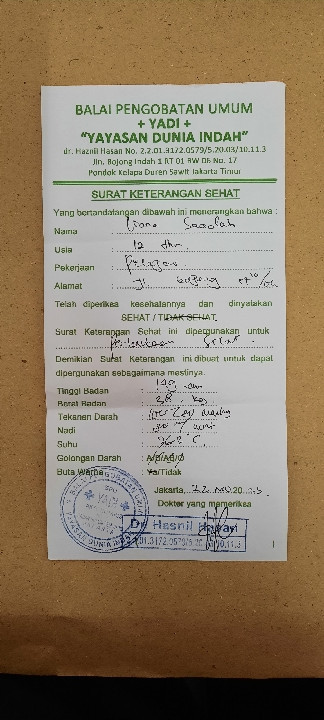 BALAI PENGOBATAN UMUM
+ YADI +
"YAYASAN DUNIA INDAH"
dr. Haznil Hasan No. 2.2.01.3172.0579/5.20.03/10.11.3
Jln. Bojong Indah 1 RT 01 RW 06 No. 17
Pondok Kelapa Duren Sawit Jakarta Timur
SURAT KETERANGAN SEHAT
Yang bertandatangan dibawah ini menerangkan bahwa :
Nama :
Usia : 12 thn
Pekerjaan : Pelajar
Alamat : Jl
Telah diperiksa kesehatannya dan dinyatakan
SEHAT / TIDAK SEHAT
Surat Keterangan Sehat ini dipergunakan untuk
Demikian Surat Keterangan ini dibuat untuk dapat
dipergunakan sebagaimana mestinya.
Tinggi Badan : 149 cm
Berat Badan : 38 kg
Tekanan Darah :
Nadi :
Suhu : °C
Golongan Darah : A/B/AB/O
Buta Warna : Ya/Tidak
Jakarta, 22 20
Dokter yang memeriksa
Dr. Hasnil Hasan
YAYASAN DUNIA INDAH